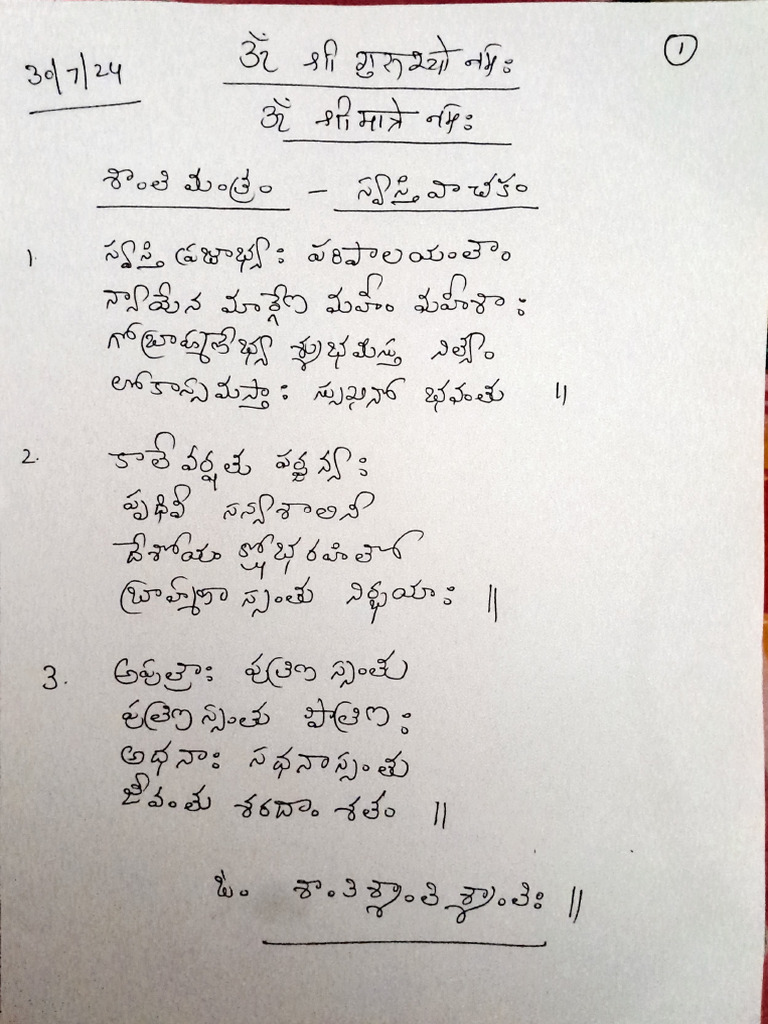 30/7/24
ॐ श्री गुरुभ्यो नमः
①
ॐ श्रीमात्रे नमः
శాంతి మంత్రం - స్వస్తి వాచకం
1. స్వస్తి ప్రజాభ్యః పరిపాలయంతాం
న్యాయేన మార్గేణ మహీం మహీశాః
గోబ్రాహ్మణేభ్య శ్శుభమస్తు నిత్యం
లోకాస్సమస్తాః స్సుఖినో భవంతు ||
2. కాలే వర్షతు పర్జన్యః
పృథివీ సస్యశాలినీ
దేశోయం క్షోభ రహితో
బ్రాహ్మణా స్సంతు నిర్భయాః ||
3. అపుత్రాః పుత్రిణ స్సంతు
పుత్రిణ స్సంతు పౌత్రిణః
అధనాః సధనాస్సంతు
జీవంతు శరదాం శతం ||
ఓం శాంతిశ్శాంతిశ్శాంతిః ||